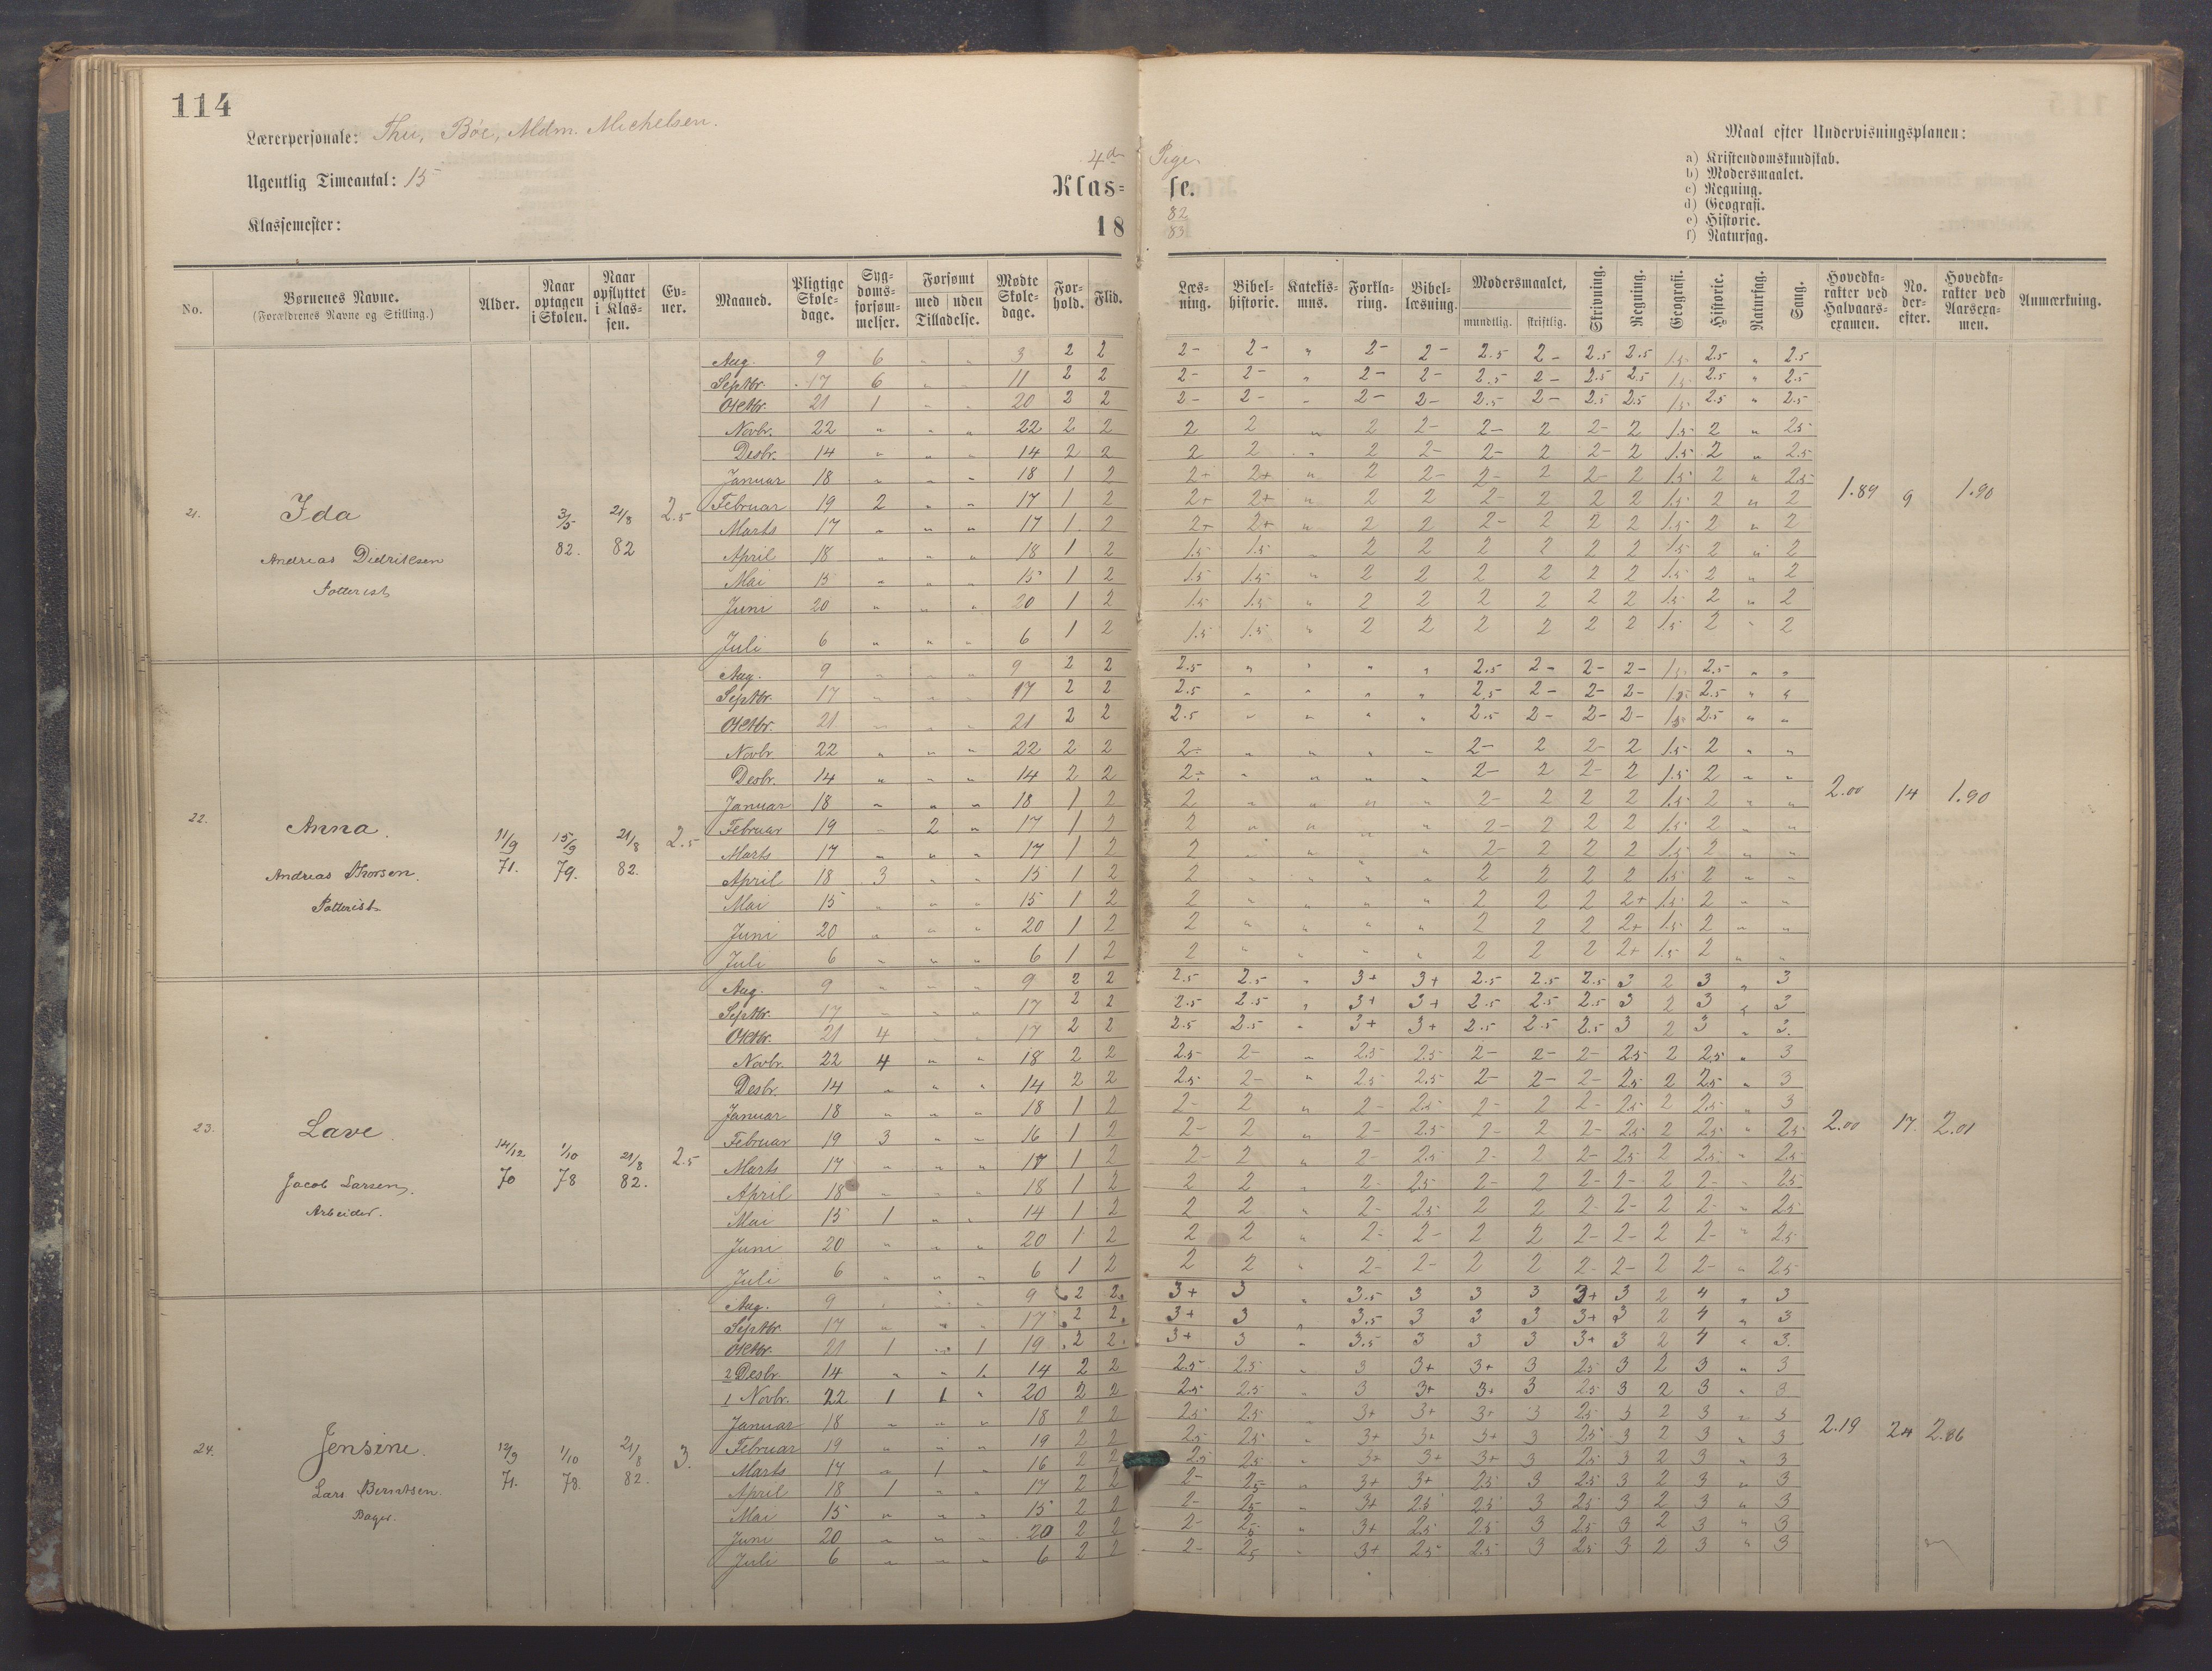 114
Lærerpersonale: Thu, Böe, Mdm. Michelsen.
Ugentlig Timeantal: 15
Klassemester:
4de Pige
Klas= se.
18 82
83
Maal efter Undervisningsplanen:
a) Kristendomskundskab.
b) Modersmaalet.
c) Regning.
d) Geografi.
e) Historie.
f) Naturfag.
No. Børnenes Navne. (Forældrenes Navne og Stilling.) Alder. Naar optagen i Skolen. Naar opflyttet i Klas=sen. Ev=ner. Maaned. Pligtige Skole=dage. Syg=doms=forsøm=melser. Forsømt med uden Tilladelse. Mødte Skole=dage. For=hold. Flid. Læs=ning. Bibel=historie. Katekis=mus. Forkla=ring. Bibel=læsning. Modersmaalet, mundtlig. skriftlig. Skrivning. Regning. Geografi. Historie. Naturfag. Sang. Hovedka=rakter ved Halvaars=examen. No. der=efter. Hovedka=rakter ved Aarsexa=men. Anmærkning.
21. Ida 3/5 82. 21/8 82 2.5 1.89 9 1.90
Andreas Didriksen
Potterist
Aug. 9 6 „ „ 3 2 2 2- 2- „ 2- 2- 2.5 2- 2.5 2.5 1.5 2.5 „ 2.5
Septbr. 17 6 „ „ 11 2 2 2- 2- „ 2- 2- 2.5 2- 2.5 2.5 1.5 2.5 „ 2.5
Oktbr. 21 1 „ „ 20 2 2 2- 2- „ 2- 2- 2.5 2- 2.5 2.5 1.5 2.5 „ 2.5
Novbr. 22 „ „ „ 22 2 2 2 2 „ 2 2- 2- 2 2- 2 1.5 2 „ 2.5
Desbr. 14 „ „ „ 14 2 2 2 2 „ 2 2- 2- 2 2- 2 1.5 2 „ 2.5
Januar 18 „ „ „ 18 1 2 2+ 2+ „ 2 2- 2- 2 2- 2 1.5 2 „ 2.5
Februar 19 2 „ „ 17 1 2 2+ 2+ „ 2 2 2- 2 2 2 1.5 2 „ 2
Marts 17 „ „ „ 17 1 2 2+ 2+ „ 2 2 2- 2 2 2 1.5 2 „ 2
April 18 „ „ „ 18 1 2 1.5 1.5 „ 2 2 2 2 2 2 1.5 2 „ 2
Mai 15 „ „ „ 15 1 2 1.5 1.5 „ 2 2 2 2 2 2 1.5 2 „ 2
Juni 20 „ „ „ 20 1 2 1.5 1.5 „ 2 2 2 2 2 2 1.5 2 „ 2
Juli 6 „ „ „ 6 1 2 1.5 1.5 „ 2 2 2 2 2 2 1.5 2 „ 2
22. Anna. 11/9 71. 15/9 79. 21/8 82. 2.5 2.00 14 1.90
Andreas Thorsen.
Potterist
Aug. 9 „ „ „ 9 2 2 2.5 „ „ „ „ 2.5 2- 2- 2- 1.5 2.5 „ „
Septbr. 17 „ „ „ 17 2 2 2.5 „ „ „ „ 2.5 2- 2- 2- 1.5 2.5 „ „
Oktbr. 21 „ „ „ 21 2 2 2.5 „ „ „ „ 2.5 2- 2- 2- 1.5 2.5 „ „
Novbr 22 „ „ „ 22 2 2 2- „ „ „ „ 2- 2 2- 2 1.5 2 „ „
Desbr. 14 „ „ „ 14 2 2 2- „ „ „ „ 2- 2 2- 2 1.5 2 „ „
Januar 18 „ „ „ 18 1 2 2 „ „ „ „ 2- 2 2 2 1.5 2 „ „
Februar 19 „ 2 „ 17 1 2 2 „ „ „ „ 2- 2 2 2 1.5 2 „ „
Marts 17 „ „ „ 17 1 2 2 „ „ „ „ 2- 2 2 2 1.5 2 „ „
April 18 3 „ „ 15 1 2 2 „ „ „ „ 2 2 2 2 1.5 2 „ „
Mai 15 „ „ „ 15 1 2 2 „ „ „ „ 2 2 2 2+ 1.5 2 „ „
Juni 20 „ „ „ 20 1 2 2 „ „ „ „ 2 2 2 2+ 1.5 2 „ „
Juli 6 „ „ „ 6 1 2 2 „ „ „ „ 2 2 2 2+ 1.5 2 „ „
23. Lave 14/12 70 1/10 78 21/8 82. 2.5 2.00 17. 2.01
Jacob Larsen.
Arbeider.
Aug. 9 „ „ „ 9 2 2 2.5 2.5 „ 3+ 3+ 2.5 2.5 2.5 3 2 3 „ 3
Septbr. 17 „ „ „ 17 2 2 2.5 2.5 „ 3+ 3+ 2.5 2.5 2.5 3 2 3 „ 3
Oktbr. 21 4 „ „ 17 2 2 2.5 2.5 „ 3+ 3+ 2.5 2.5 2.5 3 2 3 „ 3.
Novbr. 22 4 „ „ 18 2 2 2.5 2- „ 2.5 2.5 2- 2- 2- 2.5 2 2.5 „ 3
Desbr. 14 „ „ „ 14 2 2 2.5 2- „ 2.5 2.5 2- 2- 2- 2.5 2 2.5 „ 3
Januar 18 „ „ „ 18 1 2 2- 2 „ 2- 2.5 2- 2 2- 2.5 2 2.5 „ 3
Februar 19 3 „ „ 16 1 2 2- 2 „ 2- 2.5 2- 2 2- 2.5 2 2.5 „ 2.5
Marts 17 „ „ „ 17 1 2 2- 2 „ 2- 2.5 2- 2 2- 2.5 2 2.5 „ 2.5
April 18 „ „ „ 18 1 2 2 2 „ 2- 2.5 2- 2 2- 2- 2 2- „ 2.5
Mai 15 1 „ „ 14 1 2 2 2 „ 2- 2.5 2 2 2- 2- 2 2- „ 2.5
Juni 20 „ „ „ 20 1 2 2 2 „ 2- 2- 2 2 2- 2- 2 2- „ 2.5
Juli 6 „ „ „ 6 1 2 2 2 „ 2- 2- 2 2 2- 2- 2 2- „ 2.5
24. Jensine. 12/9 71. 1/10 78. 21/8 82. 3. 2.19 24 2.86
Lars Berntsen.
Bager.
Aug. 9 „ „ „ 9 2 2 3+ 3 „ 3.5 3 3 3 3+ 3 2 4 „ 3
Septbr 17 „ „ „ 17 2 2 3+ 3 „ 3.5 3 3 3 3+ 3 2 4 „ 3
Oktbr. 21 1 „ 1 19 2 2 3+ 3 „ 3.5 3 3 3 3+ 3 2 4 „ 3.
2 Desbr 14 „ „ 1. 14 2 2 2.5 2.5 „ 3 3+ 3+ 3 2.5 3 2 3 „ 3
1 Novbr. 22 1 1 „ 20 2 2 2.5 2.5 „ 3 3+ 3+ 3 2.5 3 2 3 „ 3
Januar 18 „ „ „ 18 2 2 2.5 2.5 „ 3+ 3+ 3+ 3 2.5 3 2 3 „ 3
Februar 19 „ „ „ 19 2 2 2.5 2.5 „ 3+ 3+ 3+ 3 2.5 3 2 3 „ 3
Marts 17 „ 1 „ 16 2 2 2.5 2.5 „ 3+ 3+ 3+ 3 2.5 3 2 3 „ 3
April 18 1 „ „ 17 2 2 2- 2.5 „ 3+ 3+ 2.5 3 2.5 3 2 3 „ 3
Mai 15 „ „ „ 15 2 2 2- 2.5 „ 3+ 2.5 2.5 3 2.5 3 2 3 „ 3
Juni 20 „ „ „ 20 2 2 2- 2.5 „ 3+ 2.5 2.5 3 2.5 3 2 3 „ 3
Juli 6 „ „ „ 6 2 2 2- 2.5 „ 3+ 2.5 2.5 3 2.5 3 2 3 „ 3